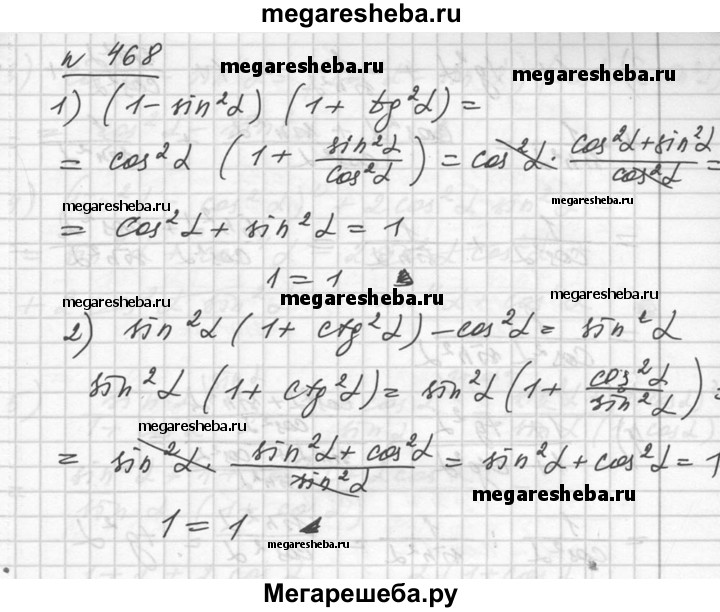 megaresheba.ru
n 468
megaresheba.ru megaresheba.ru
1) (1 - sin²α) (1 + tg²α) =
= cos²α (1 + sin²α/cos²α) = cos²α · (cos²α + sin²α)/cos²α =
megaresheba.ru megaresheba.ru
= cos²α + sin²α = 1
1 = 1
megaresheba.ru megaresheba.ru megaresheba.ru
2) sin²α (1 + ctg²α) - cos²α = sin²α
sin²α (1 + ctg²α) = sin²α (1 + cos²α/sin²α) =
megaresheba.ru
= sin²α · (sin²α + cos²α)/sin²α = sin²α + cos²α = 1
megaresheba.ru
1 = 1
megaresheba.ru
Мегарешеба.ру